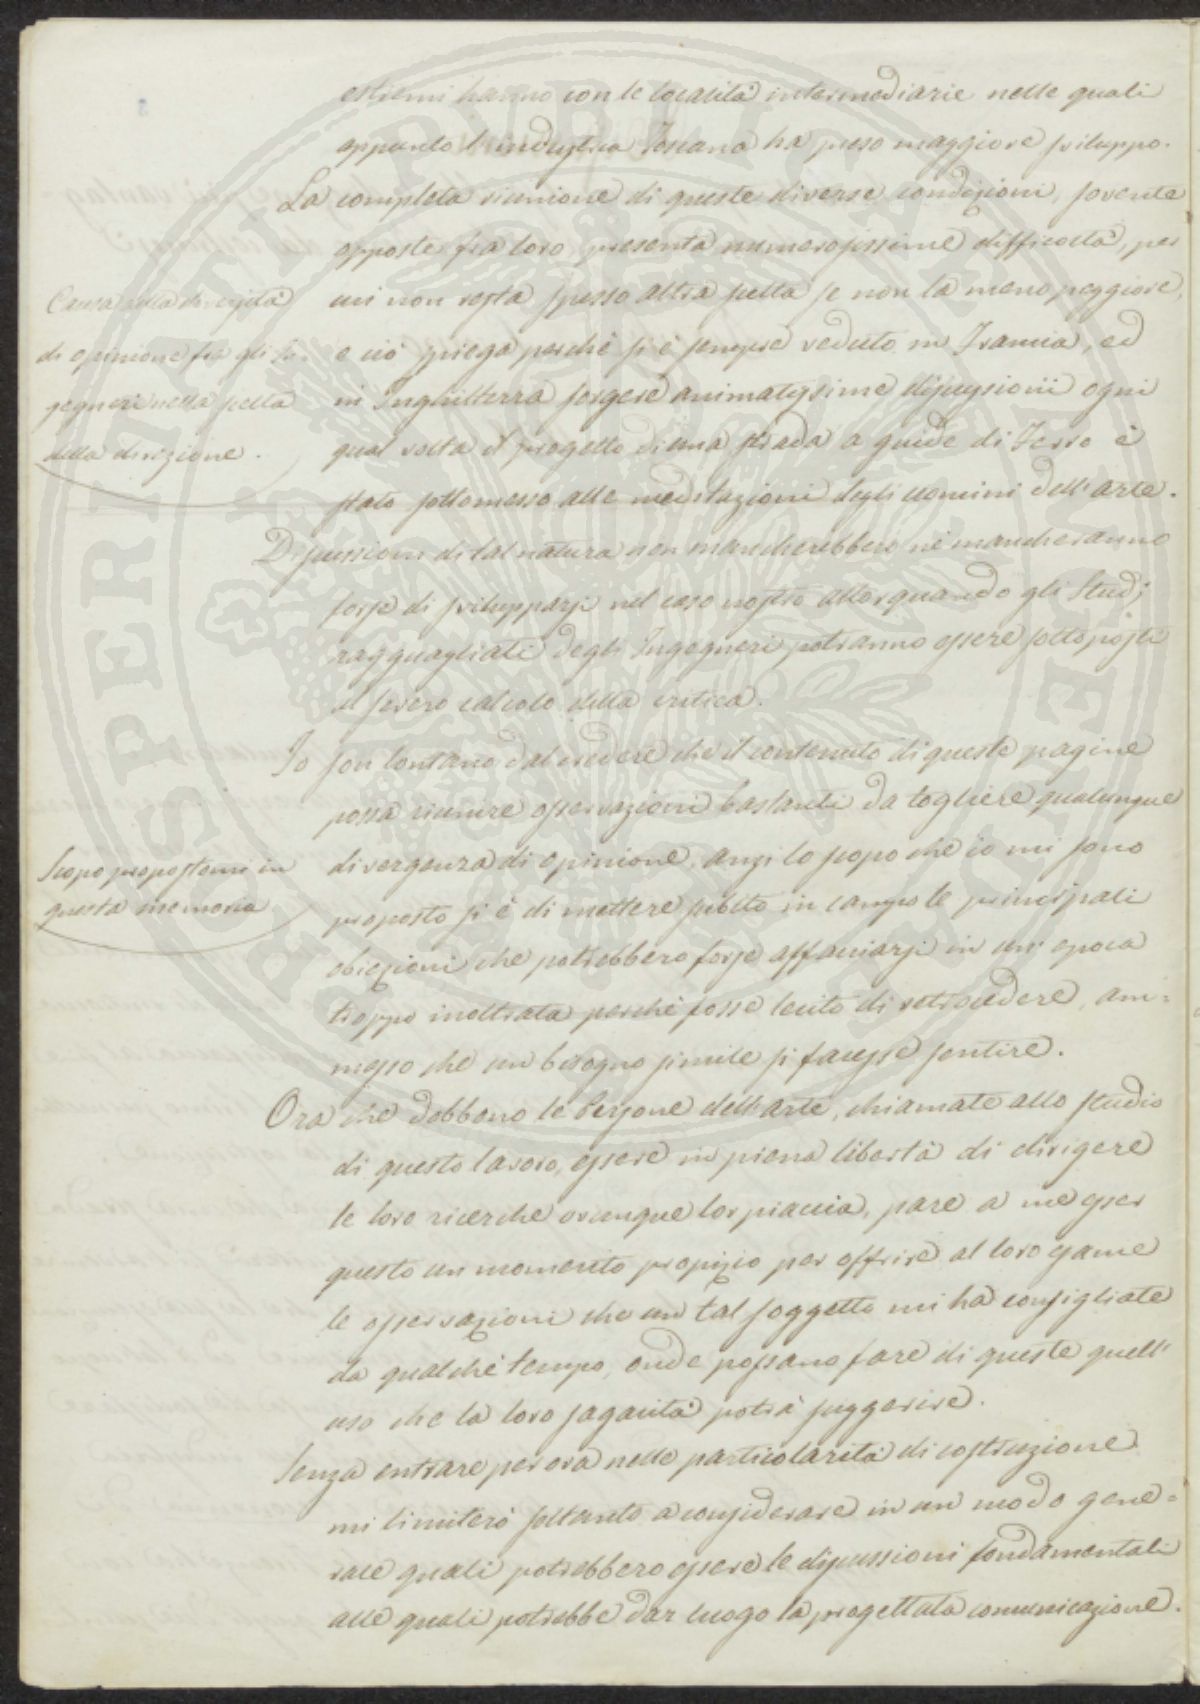 estremi hanno con le località intermediarie nelle quali
appunto l'industria Toscana ha preso maggiore sviluppo.
La completa riunione di queste diverse condizioni, sovente
opposte fra loro, presenta numerosissime difficoltà, per
cui non resta spesso altra scelta se non la meno peggiore,
Causa della diversità
di opinione fra gli In-
gegneri nella scelta
della direzione.
e ciò spiega perchè si è sempre veduto in Francia, ed
in Inghilterra sorgere animatissime discussioni ogni
qual volta il progetto di una strada a guide di Ferro è
stato sottomesso alle meditazioni degli uomini dell'arte.
Discussioni di tal natura non mancherebbero nè mancheranno
forse di svilupparsi nel caso nostro allorquando gli Studj
ragguagliati degli Ingegneri potranno essere sottoposti
al severo calcolo della critica.
Io son lontano dal credere che il contenuto di queste pagine
possa riunire osservazioni bastanti da togliere qualunque
divergenza di opinione, anzi lo scopo che io mi sono
Scopo propostomi in
questa memoria
proposto si è di mettere subito in campo le principali
obiezioni che potrebbero forse affacciarsi in un' epoca
troppo inoltrata perchè fosse lecito di retrocedere, am=
messo che un bisogno simile si facesse sentire.
Ora che debbono le Persone dell'arte, chiamate allo studio
di questo lavoro, essere in piena libertà di dirigere
le loro ricerche ovunque lor piaccia, pare a me esser
questo un momento propizio per offrire al loro esame
le osservazioni che un tal soggetto mi ha consigliate
da qualche tempo, onde possano fare di queste quell'
uso che la loro sagacità potrà suggerire.
Senza entrare per ora nelle particolarità di costruzione
mi limiterò soltanto a considerare in un modo gene=
rale quali potrebbero essere le discussioni fondamentali
alle quali potrebbe dar luogo la progettata comunicazione.